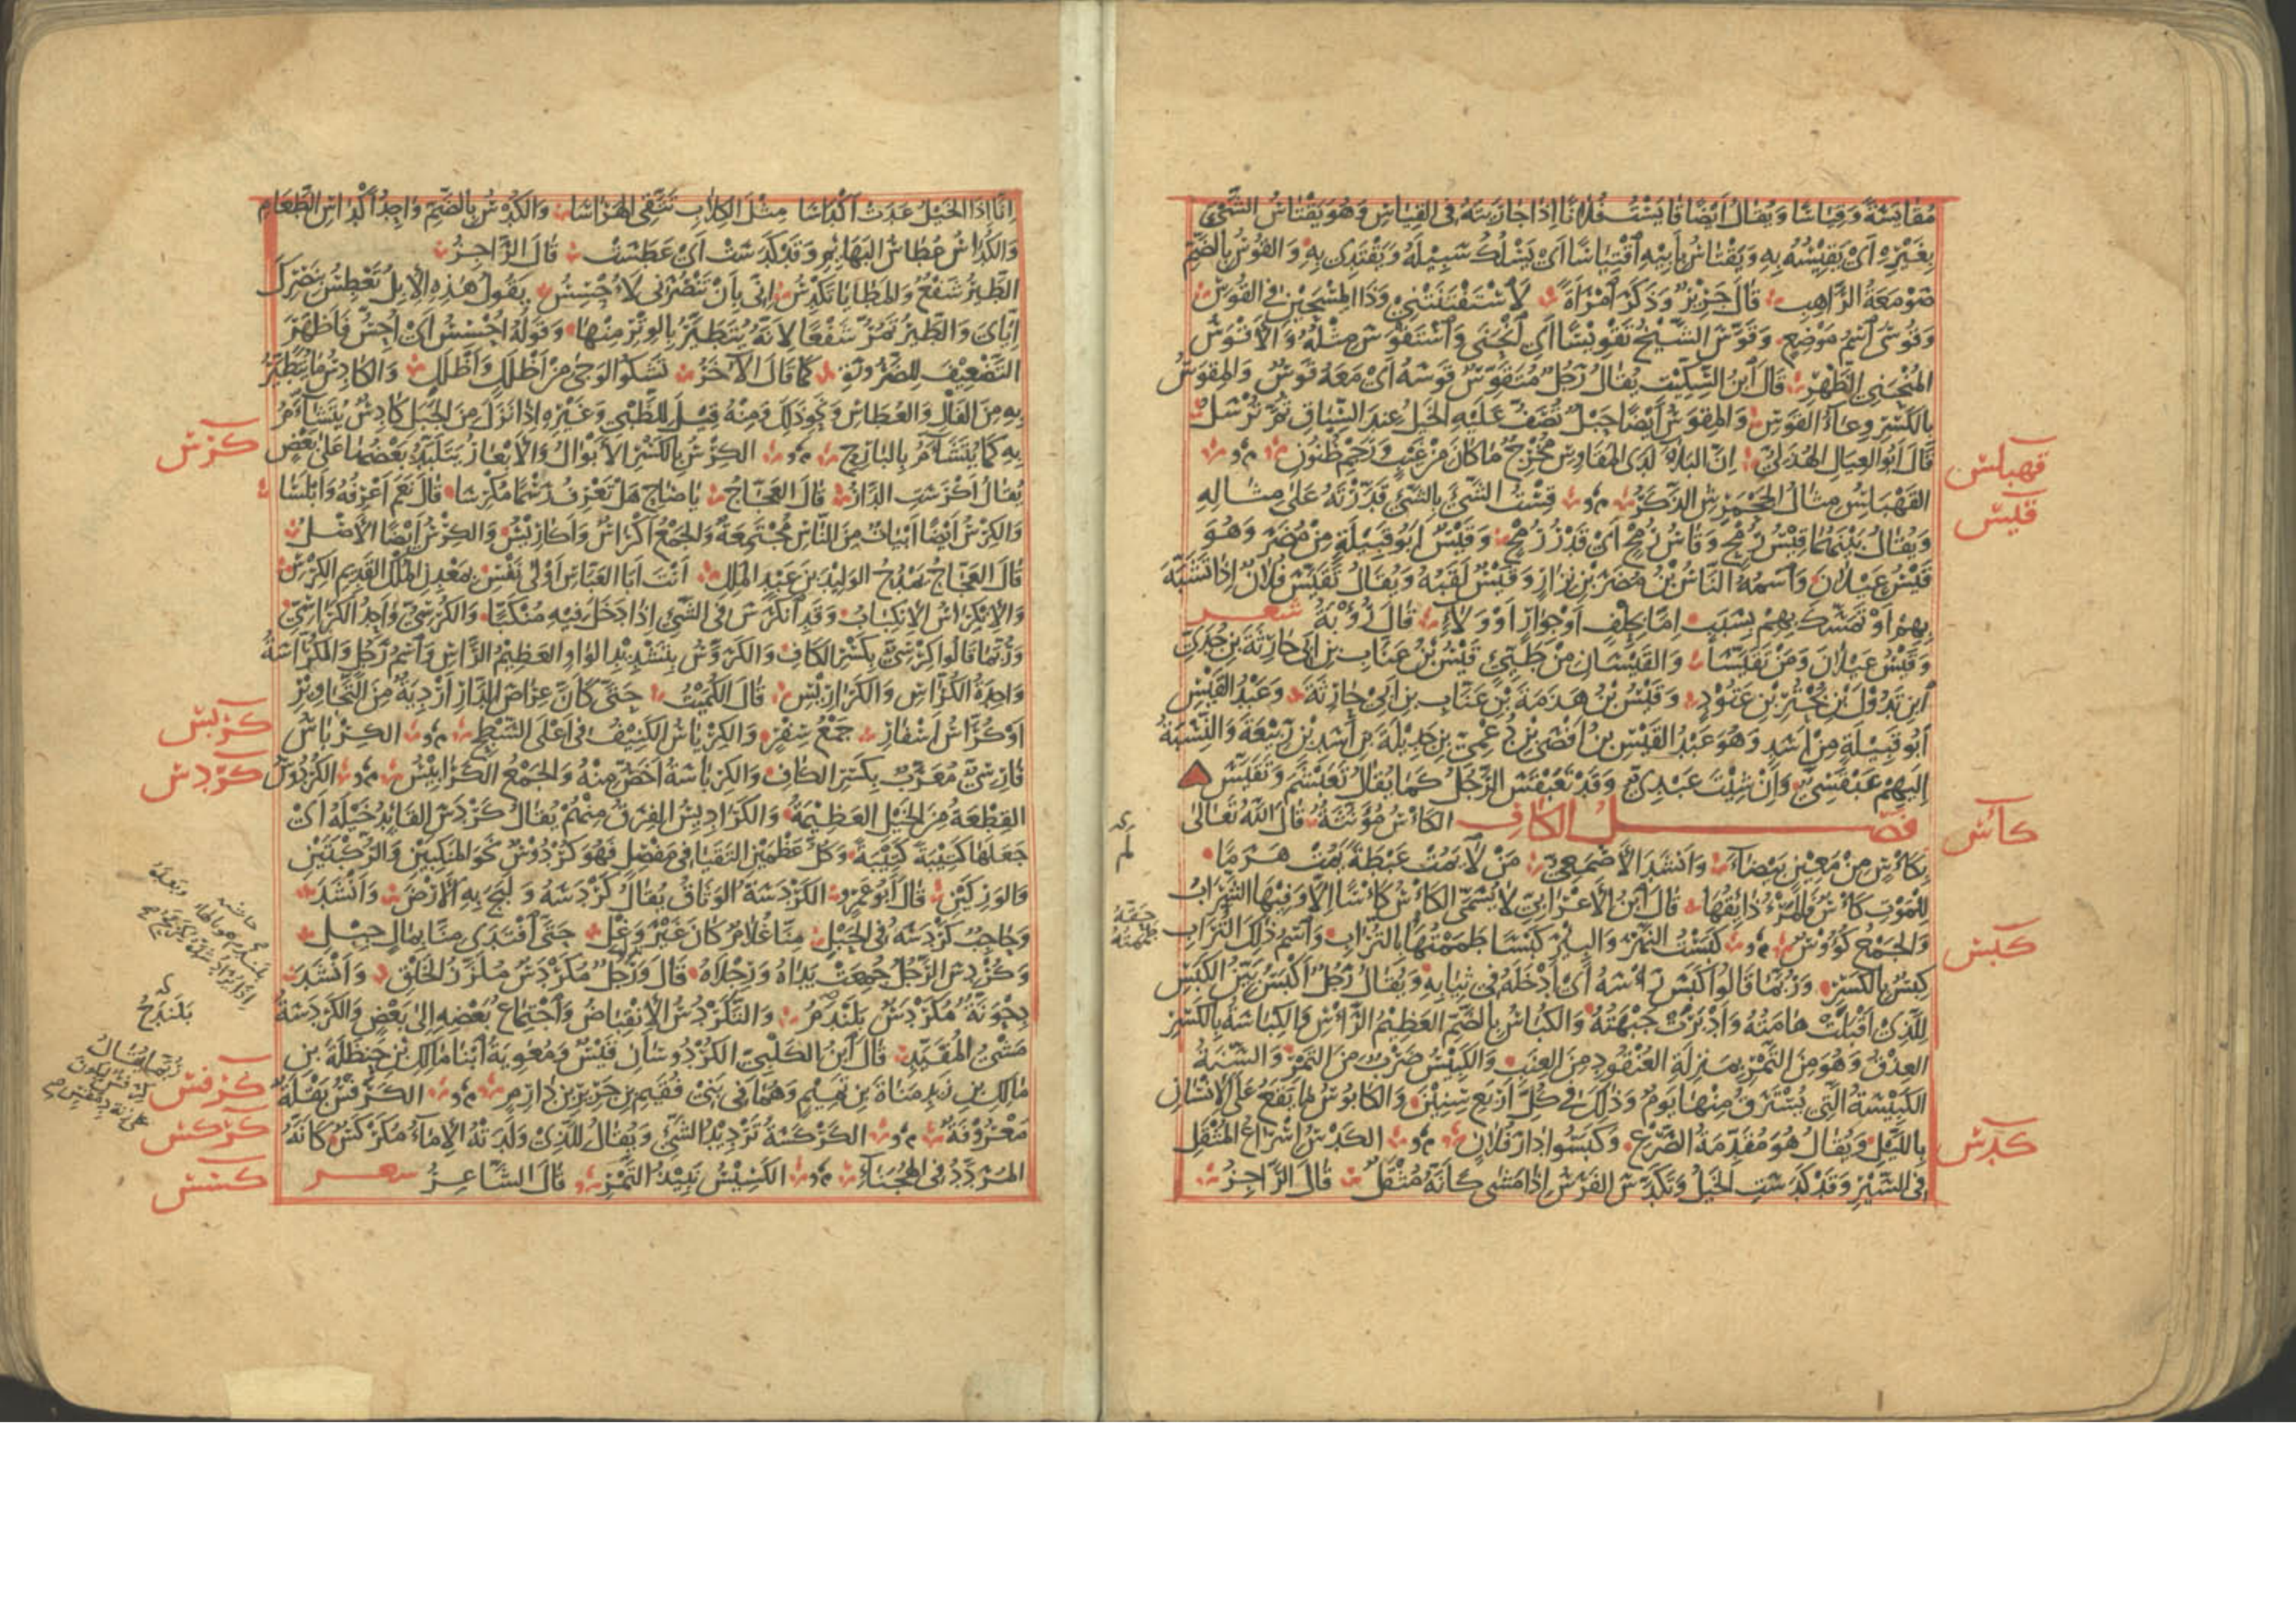 مُقَايَسَةً وَقِيَاسًا وَيُقَالُ أَيْضًا قَايَسْتُ فُلَانًا إِذَا جَارَيْتَهُ فِي القِيَاسِ وَهُوَ يَقْتَاسُ الشَّيْءَ
بِغَيْرِهِ أَيْ يَقِيسُهُ بِهِ وَيَقْتَاسُ بِأَبِيهِ اقْتِيَاسًا أَيْ يَسْلُكُ سَبِيلَهُ وَيَقْتَدِي بِهِ وَالقُوسُ بِالضَّمِّ
صَوْمَعَةُ الرَّاهِبِ قَالَ جَرِيرٌ وَذَكَرَ امْرَأَةً لَاسْتَفْتَنَتْنِي وَذَا المِسْحَيْنِ فِي القُوسِ
وَقُوسَى اسْمُ مَوْضِعٍ وَقَوَّسَ الشَّيْخُ تَقْوِيسًا أَيِ انْحَنَى وَاسْتَقْوَسَ مِثْلُهُ وَالأَقْوَسُ
المُنْحَنِي الظَّهْرِ قَالَ ابْنُ السِّكِّيتِ يُقَالُ رَجُلٌ مُتَقَوِّسٌ قَوْسَهُ أَيْ مَعَهُ قَوْسٌ وَالمِقْوَسُ
بِالكَسْرِ وِعَاءُ القَوْسِ وَالمِقْوَسُ أَيْضًا حَبْلٌ تُصَفُّ عَلَيْهِ الخَيْلُ عِنْدَ السِّبَاقِ ثُمَّ تُرْسَلُ
قَالَ أَبُو العِيَالِ الهُذَلِيُّ إِنَّ البَلَاءَ لَدَى المَقَاوِسِ مُخْرِجٌ مَا كَانَ مِنْ غَيْبٍ وَرَجْمِ ظُنُونِ
قهبلس
القَهْبَلِسُ مِثَالُ الجَحْمَرِشِ الذَّكَرُ قِسْتُ الشَّيْءَ بِالشَّيْءِ قَدَّرْتُهُ عَلَى مِثَالِهِ
قيس
وَيُقَالُ بَيْنَهُمَا قِيسُ رُمْحٍ وَقَاسُ رُمْحٍ أَيْ قَدْرُ رُمْحٍ وَقَيْسٌ أَبُو قَبِيلَةٍ مِنْ مُضَرَ وَهُوَ
قَيْسُ عَيْلَانَ وَاسْمُهُ النَّاسُ بْنُ مُضَرَ بْنِ نِزَارٍ وَقَيْسٌ لَقَبُهُ وَيُقَالُ تَقَيَّسَ فُلَانٌ إِذَا تَشَبَّهَ
بِهِمْ أَوْ تَمَسَّكَ بِهِمْ بِسَبَبٍ إِمَّا بِحِلْفٍ أَوْ جِوَارٍ أَوْ وَلَاءٍ قَالَ رُؤْبَةُ شعر
وَقَيْسُ عَيْلَانَ وَمَنْ تَقَيَّسَا وَالقَيْسَانِ مِنْ طَيِّئٍ قَيْسُ بْنُ عَتَّابِ بْنِ أَبِي حَارِثَةَ بْنِ جُدَيِّ
ابْنِ تَدُولَ بْنِ بُحْتُرِ بْنِ عَتُودٍ وَقَيْسُ بْنُ هَذَمَةَ بْنِ عَتَّابِ بْنِ أَبِي حَارِثَةَ وَعَبْدُ القَيْسِ
أَبُو قَبِيلَةٍ مِنْ أَسَدٍ وَهُوَ عَبْدُ القَيْسِ بْنُ أَفْصَى بْنِ دُعْمِيِّ بْنِ جَدِيلَةَ بْنِ أَسَدِ بْنِ رَبِيعَةَ وَالنِّسْبَةُ
إِلَيْهِمْ عَبْقَسِيٌّ وَإِنْ شِئْتَ عَبْدِيٌّ وَقَدْ تَعَبْقَسَ الرَّجُلُ كَمَا يُقَالُ تَعَبْشَمَ وَتَقَيَّسَ
كأس
فصل الكاف الكَأْسُ مُؤَنَّثَةٌ قَالَ اللهُ تَعَالَى
بِكَأْسٍ مِنْ مَعِينٍ بَيْضَاءَ وَأَنْشَدَ الأَصْمَعِيُّ مَنْ لَا يَمُتْ عَبْطَةً يَمُتْ هَرَمًا
لِلْمَوْتِ كَأْسٌ فَالمَرْءُ ذَائِقُهَا قَالَ ابْنُ الأَعْرَابِيِّ لَا يُسَمَّى الكَأْسُ كَأْسًا إِلَّا وَفِيهَا الشَّرَابُ
كبس
وَالجَمْعُ كُؤُوسٌ كَبَسْتُ النَّهْرَ وَالبِئْرَ كَبْسًا طَمَمْتُهَا بِالتُّرَابِ وَاسْمُ ذَلِكَ التُّرَابِ
كِبْسٌ بِالكَسْرِ وَرُبَّمَا قَالُوا كَبَسَ رَأْسَهُ أَيْ أَدْخَلَهُ فِي ثِيَابِهِ وَيُقَالُ رَجُلٌ أَكْبَسُ بَيِّنُ الكَبَسِ
لِلَّذِي أَقْبَلَتْ هَامَتُهُ وَأَدْبَرَتْ جَبْهَتُهُ وَالكُبَاسُ بِالضَّمِّ العَظِيمُ الرَّأْسِ وَالكِبَاسَةُ بِالكَسْرِ
العِذْقُ وَهُوَ مِنَ التَّمْرِ بِمَنْزِلَةِ العُنْقُودِ مِنَ العِنَبِ وَالكَبِيسُ ضَرْبٌ مِنَ التَّمْرِ وَالسَّنَةُ
الكَبِيسَةُ الَّتِي يُسْتَرَقُ مِنْهَا يَوْمٌ وَذَلِكَ فِي كُلِّ أَرْبَعِ سِنِينَ وَالكَابُوسُ مَا يَقَعُ عَلَى الإِنْسَانِ
كدس
بِاللَّيْلِ وَيُقَالُ هُوَ مُقَدِّمَةُ الصَّرْعِ وَكَبَسُوا دَارَ فُلَانٍ الكَدْسُ إِسْرَاعُ المُثْقَلِ
فِي السَّيْرِ وَقَدْ كَدَسَتِ الخَيْلُ وَتَكَدَّسَ الفَرَسُ إِذَا مَشَى كَأَنَّهُ مُثْقَلٌ قَالَ الرَّاجِزُ
إِنَّا إِذَا الخَيْلُ عَدَتْ أَكْدَاسَا مِثْلَ الكِلَابِ تَتَّقِي الهَرَاسَا وَالكُدْسُ بِالضَّمِّ وَاحِدُ أَكْدَاسِ الطَّعَامِ
وَالكُدَاسُ عُطَاسُ البَهَائِمِ وَقَدْ كَدَسَتْ أَيْ عَطَسَتْ قَالَ الرَّاجِزُ
الطَّيْرُ شَفْعٌ وَالمَطَايَا تَكْدِسُ إِنِّي بِأَنْ تَنْصُرَنِي لَأُحْسِسُ يَقُولُ هَذِهِ الإِبِلُ تَعْطِسُ بِنَصْرِكَ
إِيَّايَ وَالطَّيْرُ تَمُرُّ شَفْعًا لِأَنَّهُ يُتَطَيَّرُ بِالوِتْرِ مِنْهَا وَقَوْلُهُ أُحْسِسُ أَيْ أُحِسُّ فَأَظْهَرَ
التَّضْعِيفَ لِلضَّرُورَةِ كَمَا قَالَ الآخَرُ تَشْكُو الوَجَى مِنْ أَظْلَلٍ وَأَظْلَلِ وَالكَادِسُ مَا يُتَطَيَّرُ
بِهِ مِنَ الفَالِ وَالعُطَاسِ وَنَحْوِ ذَلِكَ وَمِنْهُ قِيلَ لِلظَّبْيِ وَغَيْرِهِ إِذَا نَزَلَ مِنَ الجَبَلِ كَادِسٌ يُتَشَاءَمُ
كرس
بِهِ كَمَا يُتَشَاءَمُ بِالبَارِحِ الكِرْسُ بِالكَسْرِ الأَبْوَالُ وَالأَبْعَارُ يَتَلَبَّدُ بَعْضُهَا عَلَى بَعْضٍ
يُقَالُ أَكْرَسَتِ الدَّارُ قَالَ العَجَّاجُ يَا صَاحِ هَلْ تَعْرِفُ رَسْمًا مُكْرَسَا قَالَ نَعَمْ أَعْرِفُهُ وَأَبْلَسَا
وَالكِرْسُ أَيْضًا أَبْيَاتٌ مِنَ النَّاسِ مُجْتَمِعَةٌ وَالجَمْعُ أَكْرَاسٌ وَأَكَارِيسُ وَالكِرْسُ أَيْضًا الأَصْلُ
قَالَ العَجَّاجُ يَمْدَحُ الوَلِيدَ بْنَ عَبْدِ المَلِكِ أَنْتَ أَبَا العَبَّاسِ أَوْلَى نَفْسِ بِمَعْدِنِ المُلْكِ القَدِيمِ الكِرْسِ
وَالِانْكِرَاسُ الِانْكِبَابُ وَقَدِ انْكَرَسَ فِي الشَّيْءِ إِذَا دَخَلَ فِيهِ مُنْكَبًّا وَالكُرْسِيُّ وَاحِدُ الكَرَاسِيِّ
وَرُبَّمَا قَالُوا كِرْسِيٌّ بِكَسْرِ الكَافِ وَالكَرَوَّسُ بِتَشْدِيدِ الوَاوِ العَظِيمُ الرَّأْسِ وَاسْمُ رَجُلٍ وَالكُرَّاسَةُ
وَاحِدَةُ الكُرَّاسِ وَالكَرَارِيسِ قَالَ الكُمَيْتُ حَتَّى كَأَنَّ عِرَاصَ الدَّارِ أَرْدِيَةٌ مِنَ التَّجَاوِيزِ
كربس
أَوْ كُرَّاسُ أَسْفَارِ جَمْعُ سِفْرٍ وَالكِرْيَاسُ الكَنِيفُ فِي أَعْلَى السَّطْحِ الكِرْبَاسُ
كردس
فَارِسِيٌّ مُعَرَّبٌ بِكَسْرِ الكَافِ وَالكِرْبَاسَةُ أَخَصُّ مِنْهُ وَالجَمْعُ الكَرَابِيسُ الكُرْدُوسُ
القِطْعَةُ مِنَ الخَيْلِ العَظِيمَةُ وَالكَرَادِيسُ الفِرَقُ مِنْهُمْ يُقَالُ كَرْدَسَ القَائِدُ خَيْلَهُ أَيْ
جَعَلَهَا كَتِيبَةً كَتِيبَةً وَكُلُّ عَظْمَيْنِ التَقَيَا فِي مَفْصِلٍ فَهُوَ كُرْدُوسٌ نَحْوُ المَنْكِبَيْنِ وَالرُّكْبَتَيْنِ
وَالوَرِكَيْنِ قَالَ أَبُو عَمْرٍو الكَرْدَسَةُ الوَثَاقُ يُقَالُ كَرْدَسَهُ وَلَبَجَ بِهِ الأَرْضَ وَأَنْشَدَ
وَحَاجِبٌ كَرْدَسَهُ فِي الحَبْلِ مِنَّا غُلَامٌ كَانَ غَيْرَ وَغْلِ حَتَّى افْتَدَى مِنَّا بِمَالٍ جِبْلِ
وَكُرْدِسَ الرَّجُلُ جُمِعَتْ يَدَاهُ وَرِجْلَاهُ قَالَ وَرَجُلٌ مُكَرْدَسٌ مُلَزَّزُ الخَلْقِ وَأَنْشَدَ
دِحْوَنَّةٌ مُكَرْدَسٌ بَلَنْدَمُ وَالتَّكَرْدُسُ الِانْقِبَاضُ وَاجْتِمَاعُ بَعْضِهِ إِلَى بَعْضٍ وَالكَرْدَسَةُ
بَلَنْدَحُ
مَشْيُ المُقَيَّدِ قَالَ ابْنُ الكَلْبِيِّ الكُرْدُوسَانِ قَيْسٌ وَمُعَوِيَةُ ابْنَا مَالِكِ بْنِ حَنْظَلَةَ بْنِ
كرفس
مَالِكِ بْنِ زَيْدِ مَنَاةَ بْنِ تَمِيمٍ وَهُمَا فِي بَنِي فُقَيْمِ بْنِ جَرِيرِ بْنِ دَارِمٍ الكَرَفْسُ بَقْلَةٌ
كركس
مَعْرُوفَةٌ الكَرْكَسَةُ تَرْدِيدُ الشَّيْءِ وَيُقَالُ لِلَّذِي وَلَدَتْهُ الإِمَاءُ مُكَرْكَسٌ كَأَنَّهُ
كسس
المُرَدَّدُ فِي الهُجَنَاءِ الكَسِيسُ نَبِيذُ التَّمْرِ قَالَ الشَّاعِرُ شعر